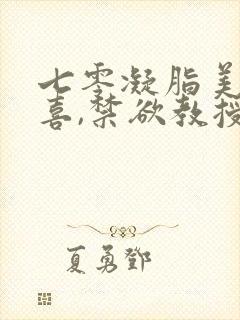 七零凝脂美
喜,禁欲教授
夏勇邓